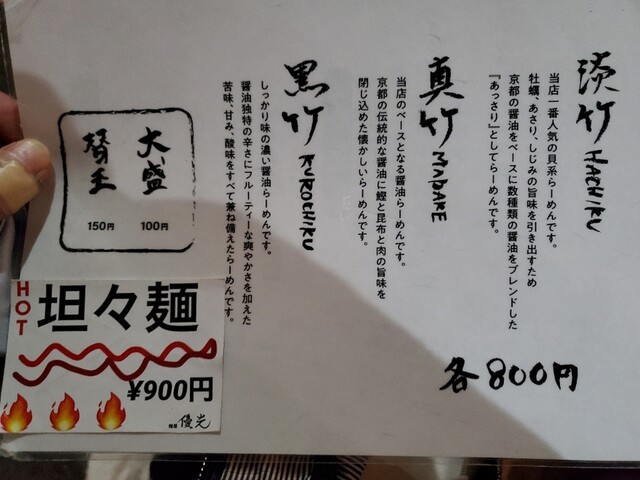 淡竹 HACHIKU
当店一番人気の貝系らーめんです。
牡蠣、あさり、しじみの旨味を引き出すため
京都の醤油をベースに数種類の醤油をブレンドした
『あっさり』としてらーめんです。
真竹 MADAKE
当店のベースとなる醤油らーめんです。
京都の伝統的な醤油に鰹と昆布と肉の旨味を
閉じ込めた懐かしいらーめんです。
黒竹 KUROCHIKU
しっかり味の濃い醤油らーめんです。
醤油独特の辛さにフルーティーな爽やかさを加えた
苦味、甘み、酸味をすべて兼ね備えたらーめんです。
各800円
大盛
100円
替玉
150円
HOT
坦々麺
¥900円
麺屋 優光